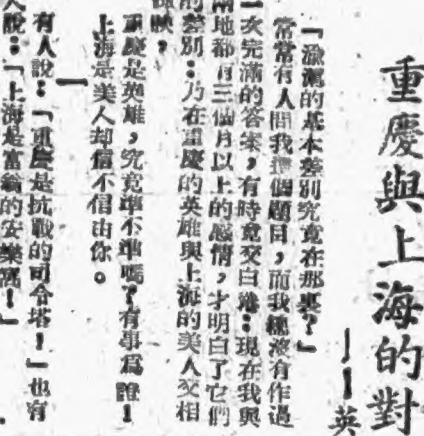 重慶與上海的對
——英
「渝滬的基本差別究竟在那裏?」
常常有人問我這個題目,而我總沒有作過
一次完滿的答案,有時竟交白卷:現在我與
兩地都有三個月以上的感情,才明白了它們
的差別:乃在重慶的英雄與上海的美人交相
映,
重慶是英雄,究竟準不準嗎?有事爲證!
上海是美人却信不信由你。
有人說:「重慶是抗戰的司令塔!」也有
人說:「上海是富翁的安樂窩!」